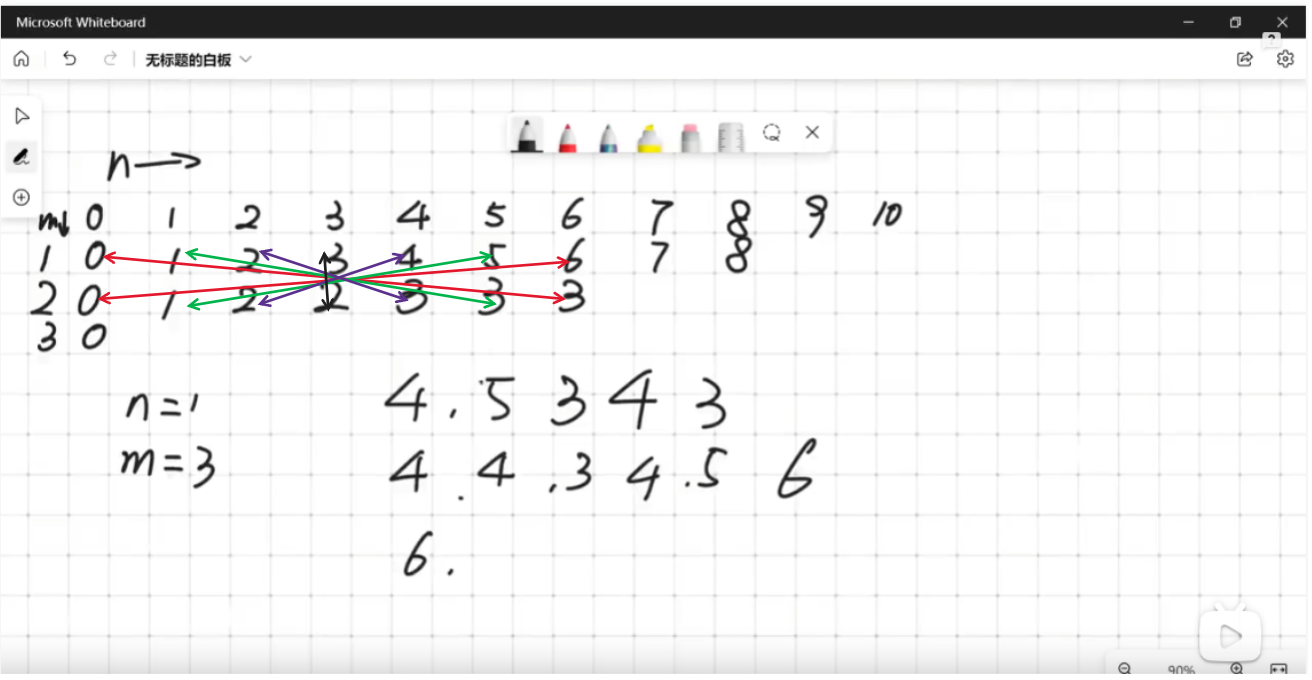 Microsoft Whiteboard
?
无标题的白板
n→
m↓ 0 1 2 3 4 5 6 7 8 9 10
1 0 1 2 3 4 5 6 7 8
2 0 1 2 2 3 3 3
3 0
n=1 4.5 3 4 3
m=3 4.4.3 4.5 6
6.
90%